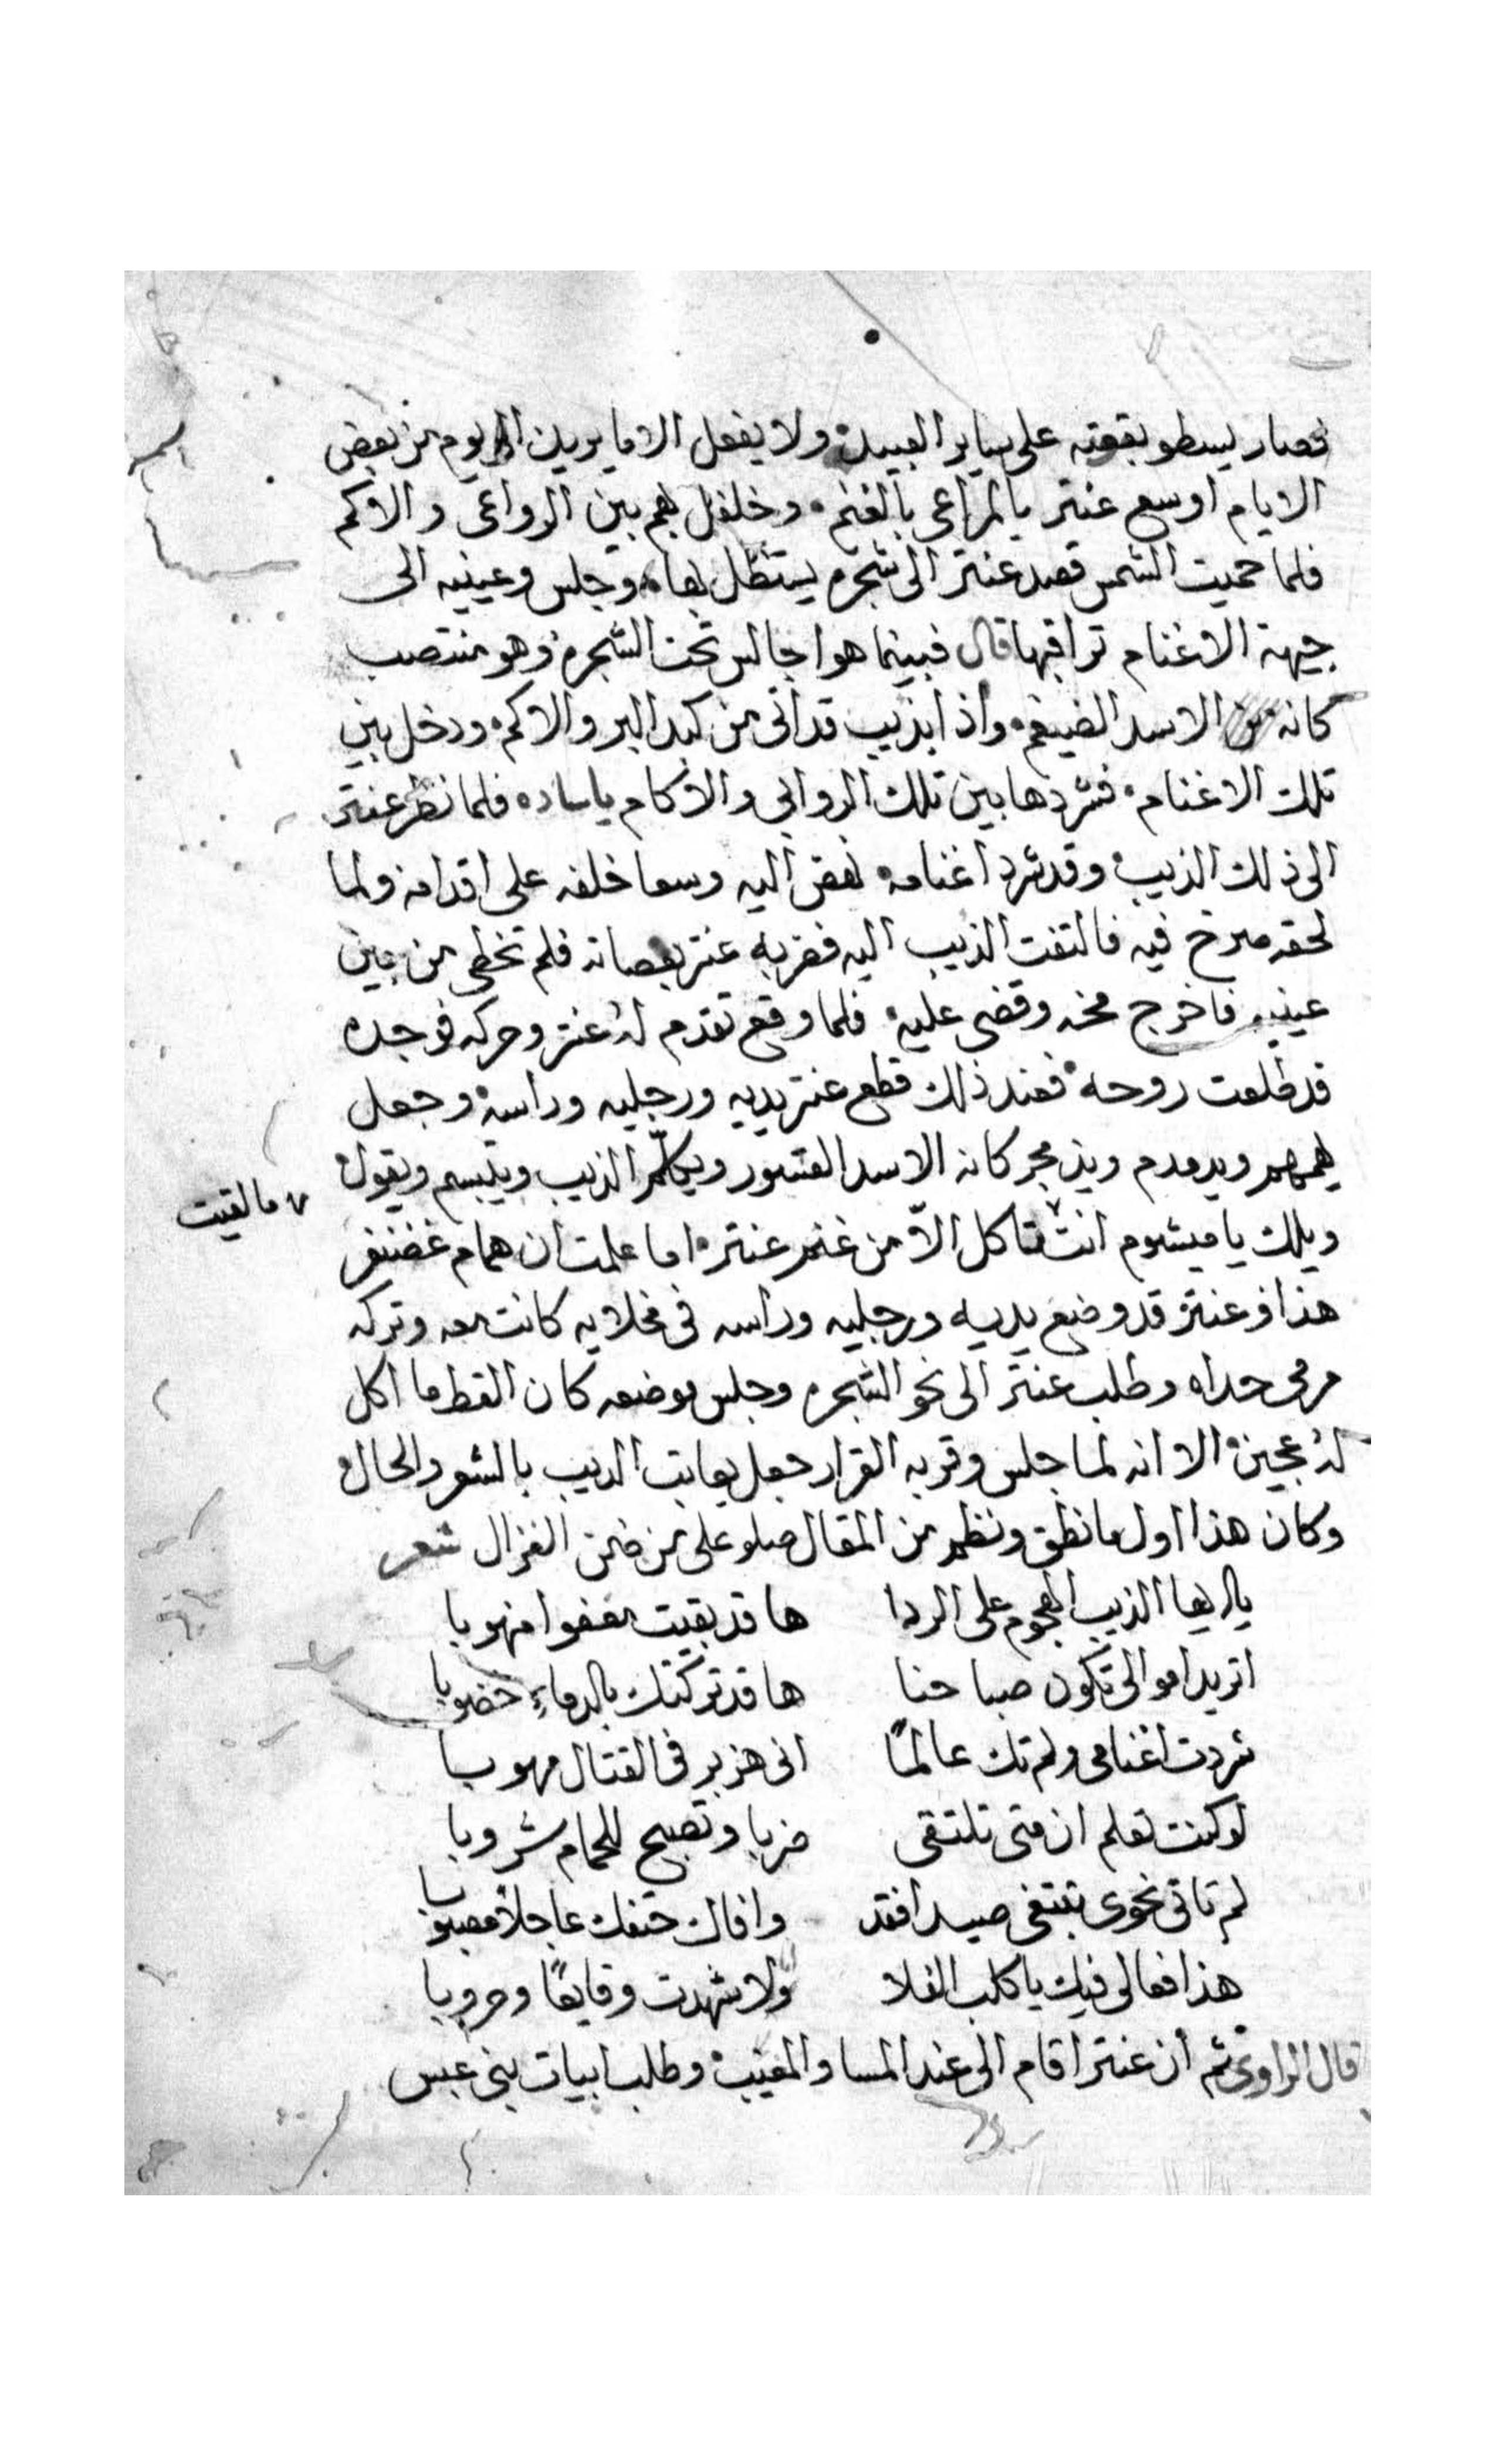 فصار يسطو بقوته على ساير العبيد ولا يفعل الا ما يريد الى يوم من بعض
الايام اوسع عنتر بالمراعي بالغنم ودخل بهم بين الروابي والاكم
فلما حميت الشمس قصد عنتر الى شجره يستظل بها وجلس وعينيه الى
جهة الاغنام تراقبها قال فبينما هوا جالس تحت الشجره وهو منتصب
كانه الاسد الضيغم واذا بذيب قد اتى من كبد البر والاكم ودخل بين
تلك الاغنام فشردها بين تلك الروابي والاكام ياساده فلما نظر عنتر
الى ذلك الذيب وقد شرد اغنامه نهض اليه وسعا خلفه على اقدامه ولما
لحقه صرخ فيه فالتفت الذيب اليه فضربه عنتر بعصاته فلم تخطي من بين
عينيه فاخرج مخه وقضى عليه فلما وقع تقدم له عنتر وحركه فوجده
قد طلعت روحه فعند ذلك قطع عنتر يديه ورجليه وراسه وجعل
يهمهم ويدمدم ويزمجر كانه الاسد القسور ويكلّم الذيب ويتبسم ويقول
ويلك يا ميشوم انت تاكل الاّ من غنم عنتر اما علمت ان همام غضنفر
ما لقيت
هذا وعنتر قد وضع يديه ورجليه وراسه في مخلايه كانت معه وتركه
مرمي حداه وطلب عنتر الى نحو الشجره وجلس موضعه كان القط ما اكل
له عجين الا انه لما جلس وقر به القرار جعل يعاتب الديب بالشعر والحال
وكان هذا اول ما نطق ونظم من المقال صلو على من ضمن الغزال شعر
يا ايها الذيب الهجوم على الردا ها قد بقيت معفوا منهوبا
اتريد اموالي تكون صباحنا ها قد تركتك بالدماءِ خضوبا
شردت اغنامي ولم تك عالمًا اني هزبر في القتال مهوبا
لو كنت تعلم ان متى تلتقي ضربا وتصبح للحمام شروبا
لم تاتي نحوي تبتغي صيدا فقد وافاك حتفك عاجلاً مصبوبا
هذا فعالي فيك يا كلب الفلا ولا شهدت وقايعًا وحروبا
قال الراوي ثم ان عنتر اقام الى عند المسا والمغيب وطلب ابيات بني عبس